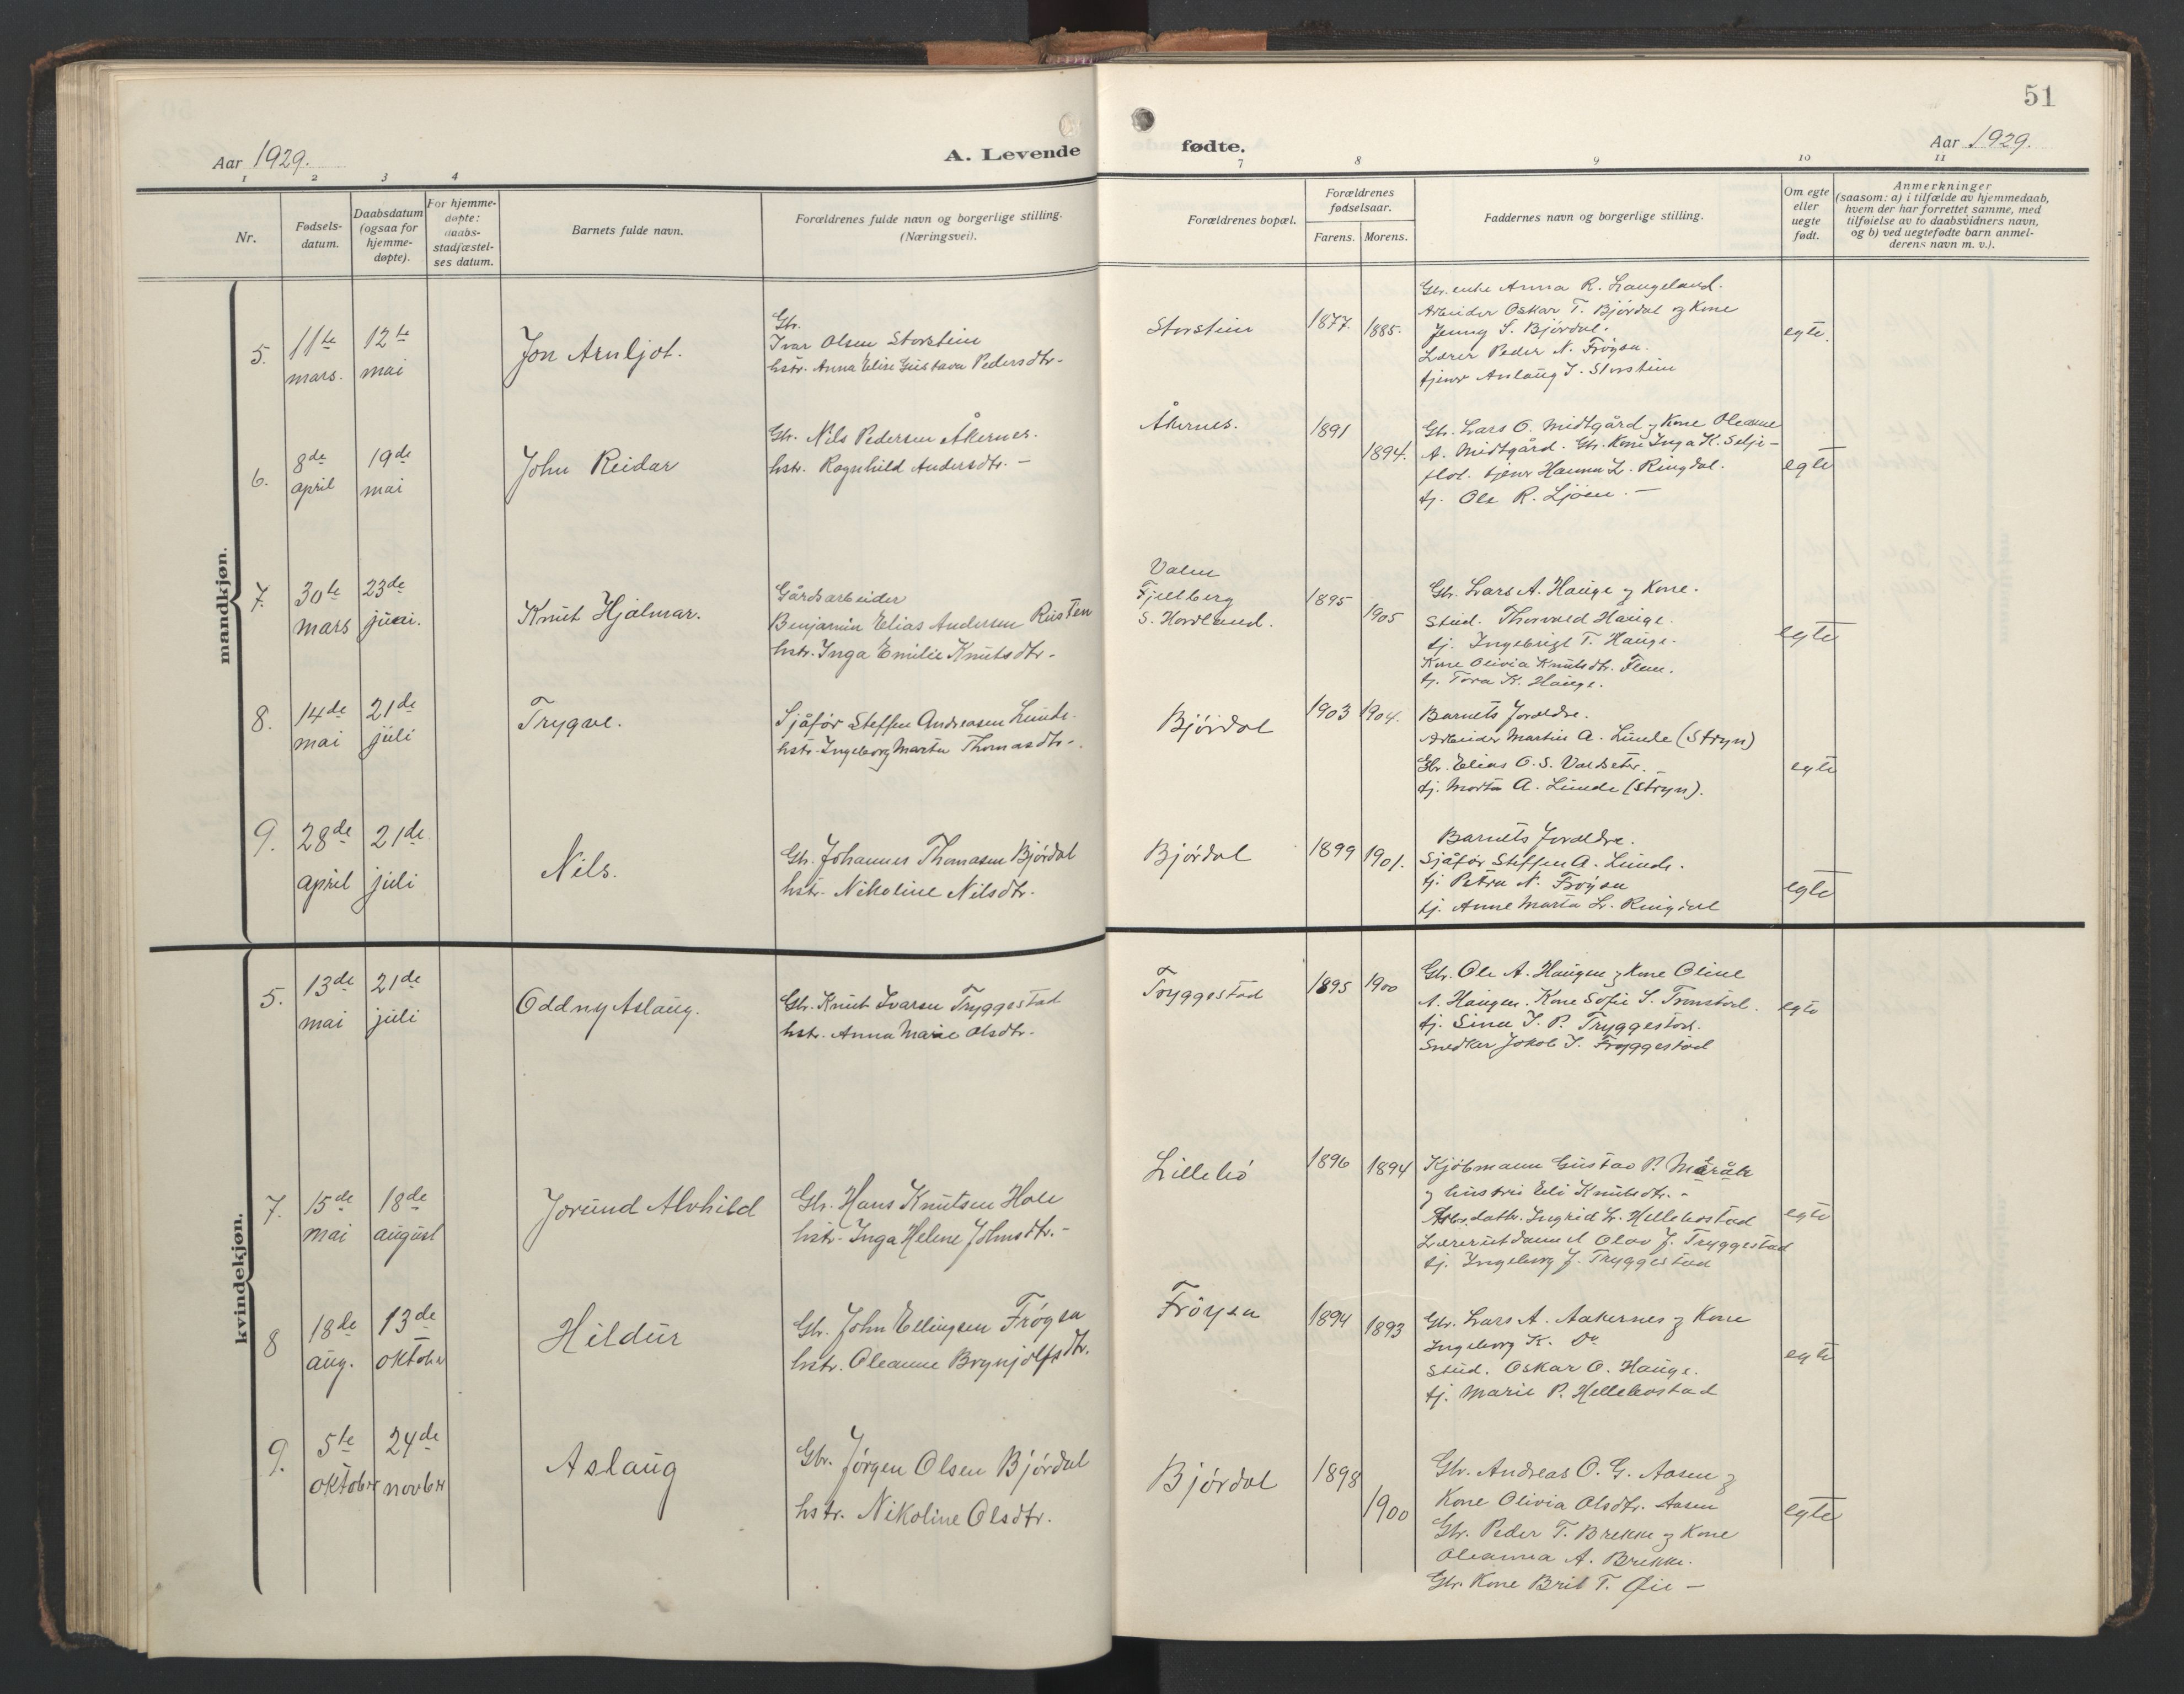 51
Aar 1929.
A. Levende
fødte.
Aar 1929.
1 2 3 4
7 8 9 10 11
Nr.
Fødsels-
datum.
Daabsdatum
(ogsaa for
hjemme-
døpte).
For hjemme-
døpte:
daabs-
stadfæstel-
ses datum.
Barnets fulde navn.
Forældrenes fulde navn og borgerlige stilling.
(Næringsvei).
Forældrenes bopæl.
Forældrenes
fødselsaar.
Farens. Morens.
Faddernes navn og borgerlige stilling.
Om egte
eller
uegte
født.
Anmerkninger
(saasom: a) i tilfælde av hjemmedaab,
hvem der har forrettet samme, med
tilføielse av to daabsvidners navn,
og b) ved uegtefødte barn anmel-
derens navn m. v.).
mandkjøn.
5.
11te
mars.
12te
mai
Jon Arnljot.
Gbr.
Ivar Olsen Storstein
hstr. Anna Elise Gustava Pedersdtr.-
Storstein
1877. 1885.
Gbr. enke Anna R. Langeland.
Arbeider Oskar T. Bjórdal og Kone
Jenny S. Bjórdal.
Lærer Peder N. Fróysa.
tjener Aslaug I. Storstein
egte.
6.
8de
april
19de
mai
John Reidar
Gbr. Nils Pedersen Åkernes.
hstr. Ragnhild Andersdtr. -
Åkernes.
1891
1894.
Gbr. Lars O. Midtgård og Kone Oleanne
A. Midtgård. Gbr. Kone Inga K. Selje-
flot. tjener Hanna L. Ringdal.
tj. Ole R. Ljóen. -
egte
7.
30te
mars
23de
juni.
Knut Hjalmar.
Gårdsarbeider
Benjamin Elias Andersen Rusten
hstr. Inga Emilie Knutsdtr.-
Valen
Fjellberg
S. Hordland.
1895
1905
Gbr. Lars A. Hauge og Kone.
Stud. Thorvald Hauge.
tj. Ingebrigt T. Hauge.
Kone Olivia Knutsdtr. Flem.
tj. Tora K. Hauge.
egte
8.
14de
mai
21de
juli
Trygve.
Sjåfór Steffen Andreasen Lunde.
hstr. Ingeborg Marta Thomasdtr-.
Bjórdal
1903 1904.
Barnets foreldre.
Arbeider Martin A. Lunde (Stryn)
Gbr. Elias O. S. Vardseter.
tj. Marta A. Lunde (Stryn).
egte
9.
28de
april
21de
juli
Nils.
Gbr. Johannes Thomasen Bjórdal
hstr. Nikoline Nilsdtr.
Bjórdal
1899 1901.
Barnets foreldre.
Sjåfór Steffen A. Lunde.
tj. Petra N. Fróysa
tj. Anne Marta L. Ringdal
egte
kvindekjøn.
5.
13de
mai
21de
juli
Oddny Aslaug.
Gbr. Knut Ivarsen Tryggestad
hstr. Anna Marie Olsdtr.
Tryggestad
1895 1900
Gbr. Ole A. Haugen og Kone Oline
A. Haugen. Kone Sofie S. Tronstad.
tj. Sina I. P. Tryggestad.
Snedker Jakob I. Tryggestad
egte
7.
15de
mai
18de
august
Jorund Alvhild
Gbr. Hans Knutsen Hole
hstr. Inga Helene Johnsdtr.-
Lillebó
1896 1894
Kjóbmann Gustav P. Meråk
og hustru Eli Knutsdtr. -
Arb. datter Ingrid L. Hellebostad
Lærerutdannet Olav J. Tryggestad
tj. Ingeborg J. Tryggestad
egte
8
18de
aug.
13de
oktober
Hildur
Gbr. John Ellingsen Fróysa
hstr. Oleanne Brynjolfsdtr.
Fróysa
1894 1893
Gbr. Lars A. Aakernes og Kone
Ingeborg K. Do
Stud. Oskar O. Hauge.
tj. Marie P. Hellebostad
egte
9.
5te
oktober
24de
novber
Aslaug
Gbr. Jórgen Olsen Bjórdal
hstr. Nikoline Olsdtr.
Bjórdal
1898
1900
Gbr. Andreas O. G. Aasen og
Kone Olivia Olsdtr. Aasen
Gbr. Peder T. Brekke og Kone
Oleanna A. Brekke.
Gbr. Kone Brit T. Øie -
egte